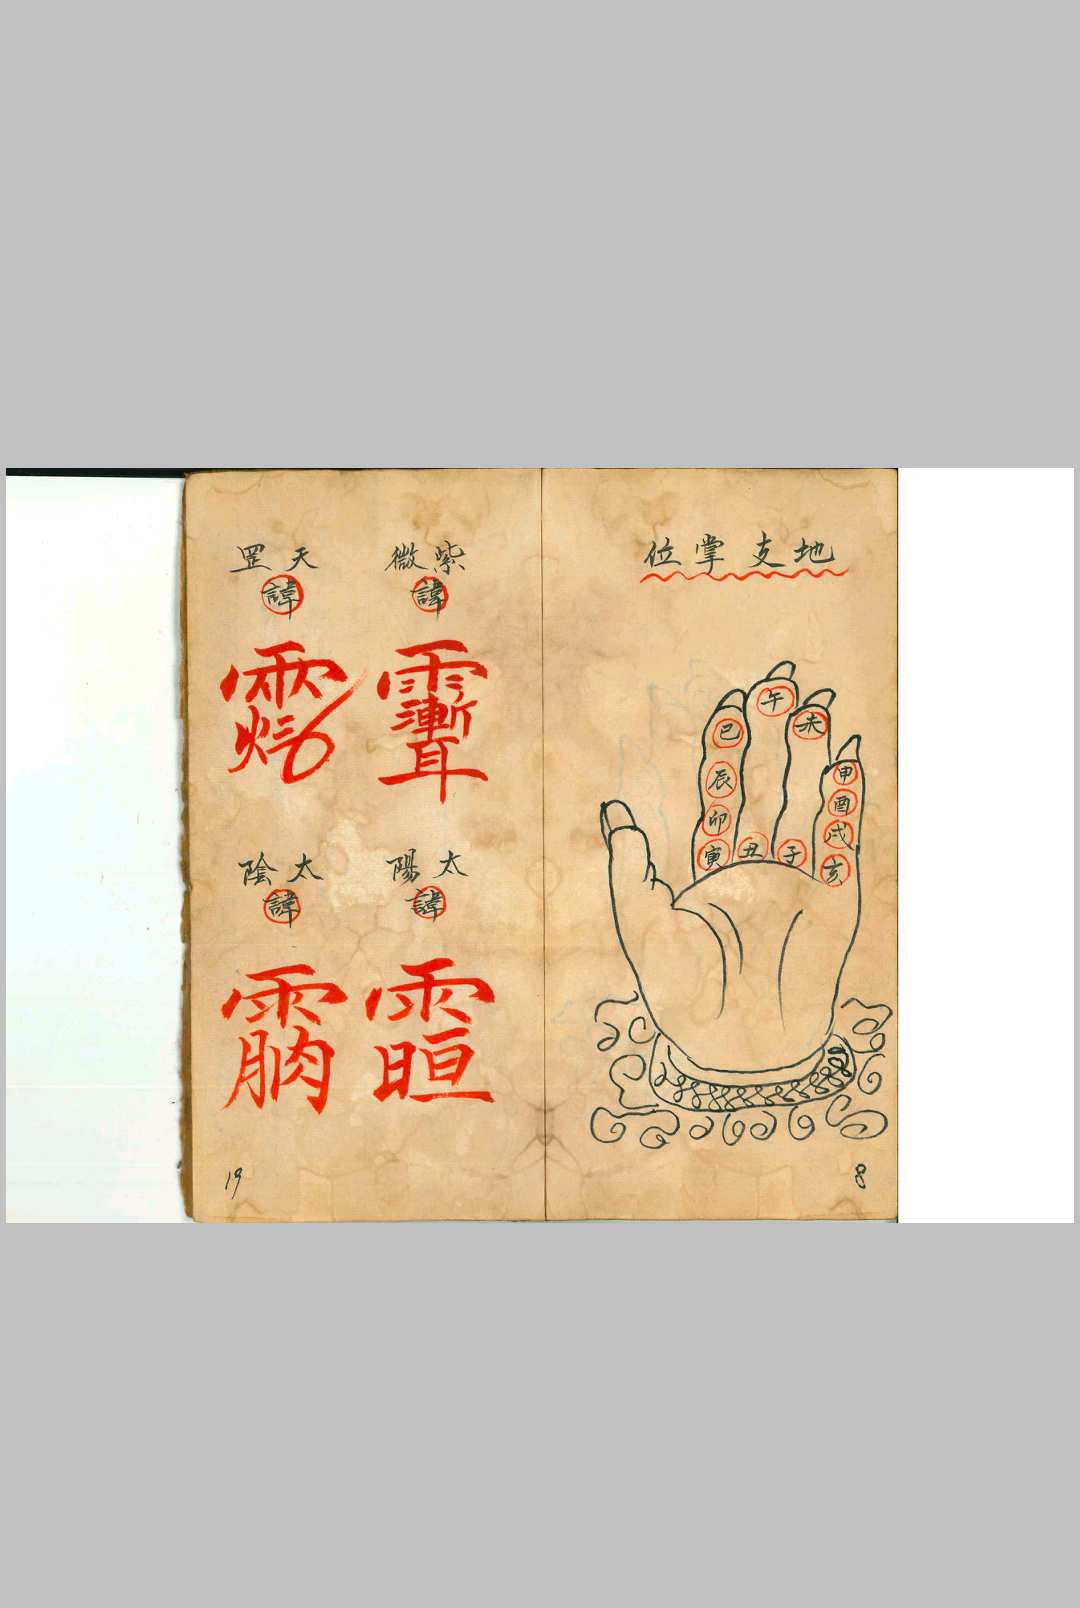 地支掌位
午
巳
未
申
辰
酉
卯
戌
寅
丑
子
亥
8
紫微
諱
天罡
諱
太陽
諱
太陰
諱
19